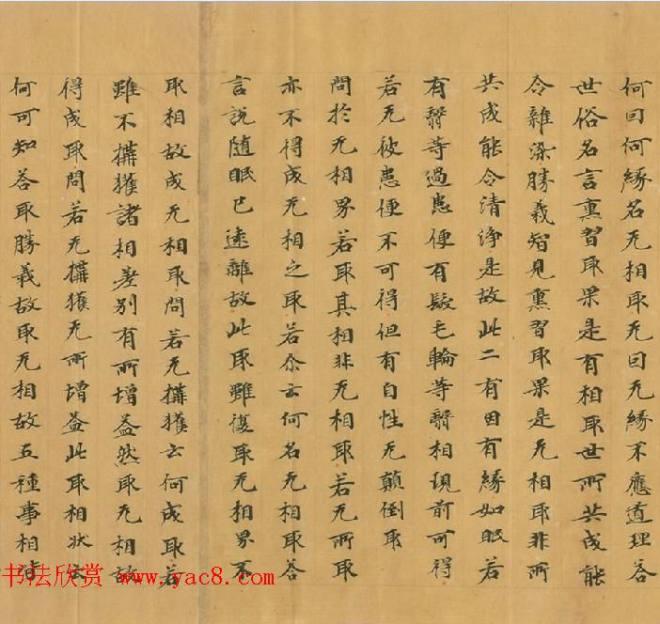 何因何縁名无相取无因无縁不應道理答
世俗名言熏習取果是有相取世所共成能
令雜染勝義智見熏習取果是无相取非所
共成能令清浄是故此二有因有縁如眼若
有翳等過患便有髮毛輪等翳相現前可得
若无彼患便不可得但有自性无顛倒取
問於无相界若取其相非无相取若无所取
亦不得成无相之取若尒云何名无相取答
言說随眠已遠離故此取雖復取无相界不
取相故成无相取問若无搆獲云何成取答
雖不搆獲諸相差別有所增益然取无相故
得成取問若无搆獲无所增益此取相狀云
何可知答取勝義故取无相故五種事相皆
书法欣赏 www.yac8.com